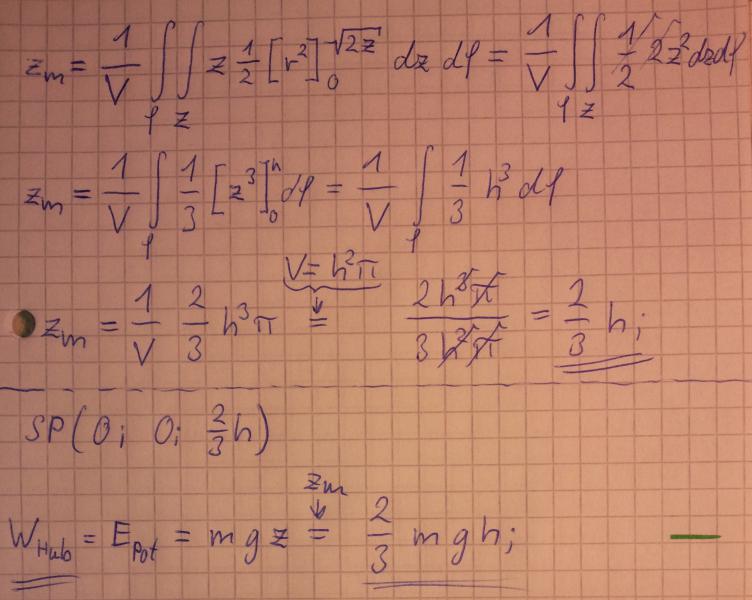 z_m = 1/V ∫_φ ∫_z z 1/2 [r²]_0^√(2z) dz dφ = 1/V ∫_φ ∫_z 1/2 2z² dz dφ
z_m = 1/V ∫_φ 1/3 [z³]_0^h dφ = 1/V ∫_φ 1/3 h³ dφ
V = h²π
z_m = 1/V 2/3 h³π = 2h³π / 3h²π = 2/3 h;
SP(0; 0; 2/3 h)
z_m
W_Hub = E_pot = m g z = 2/3 m g h;